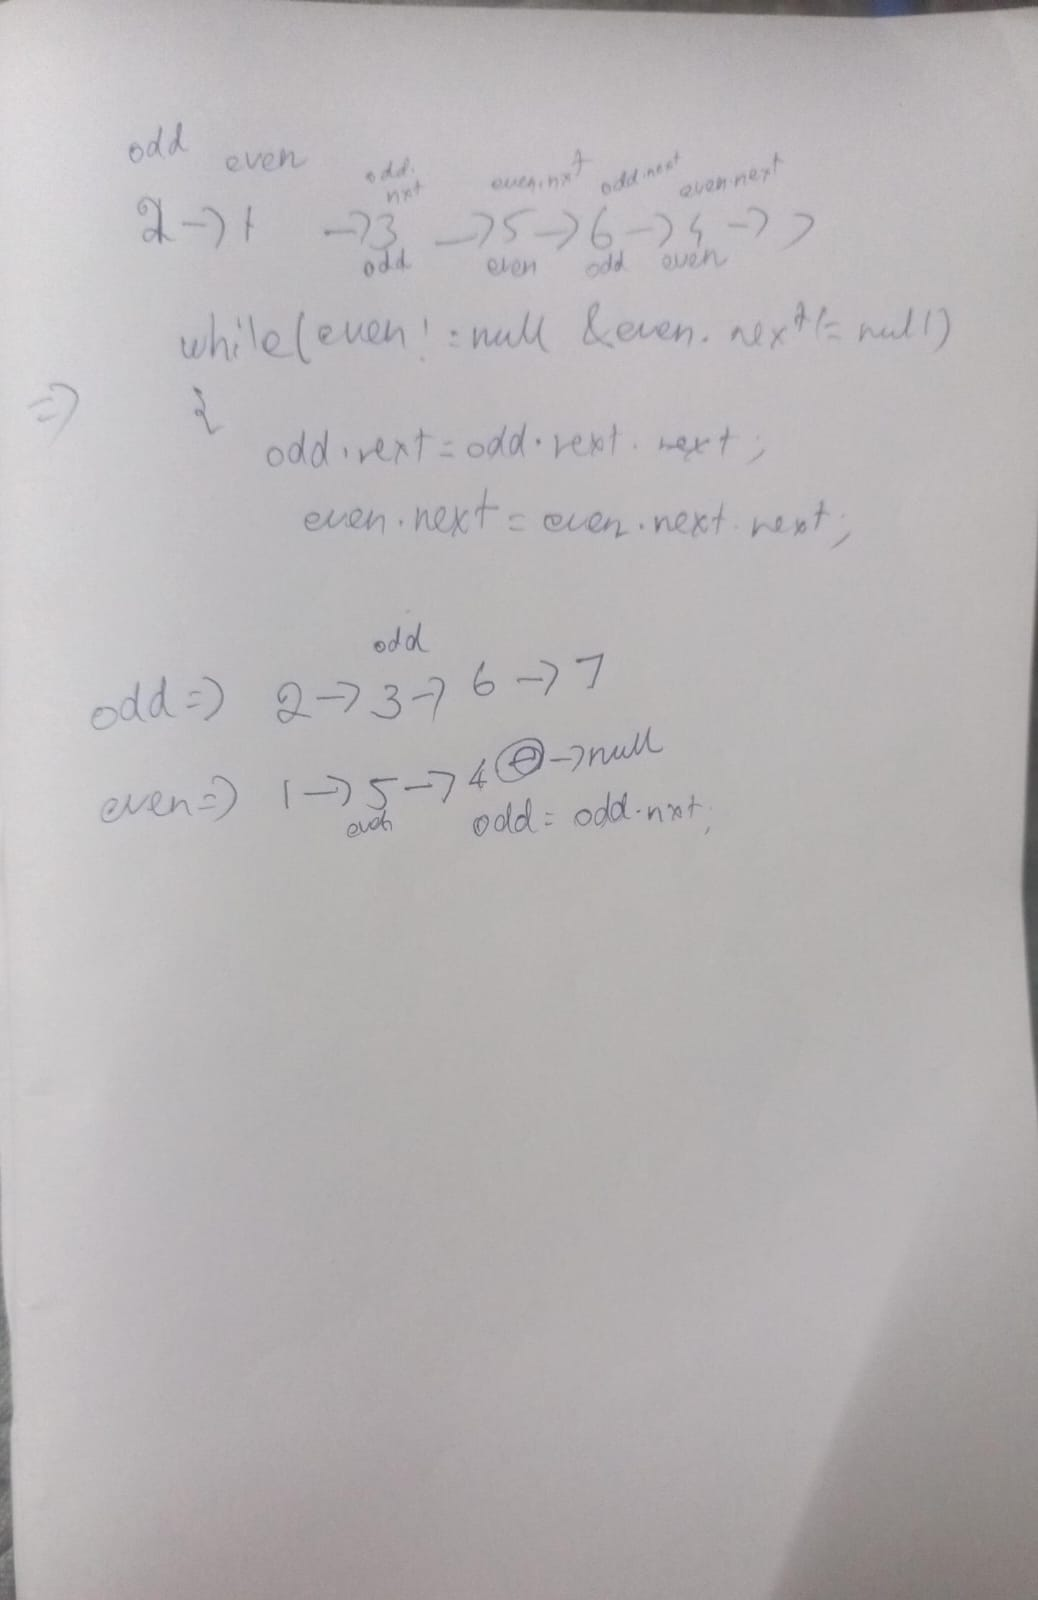 odd even odd. nxt even.nxt odd.next even.next
2 -> 1 -> 3 -> 5 -> 6 -> 4 -> 7
odd even odd even
while(even! = null & even. next != null)
=> {
odd.next = odd.next. next;
even.next = even.next.next;
odd
odd => 2 -> 3 -> 6 -> 7
even => 1 -> 5 -> 4 -> null
even odd = odd.nxt;